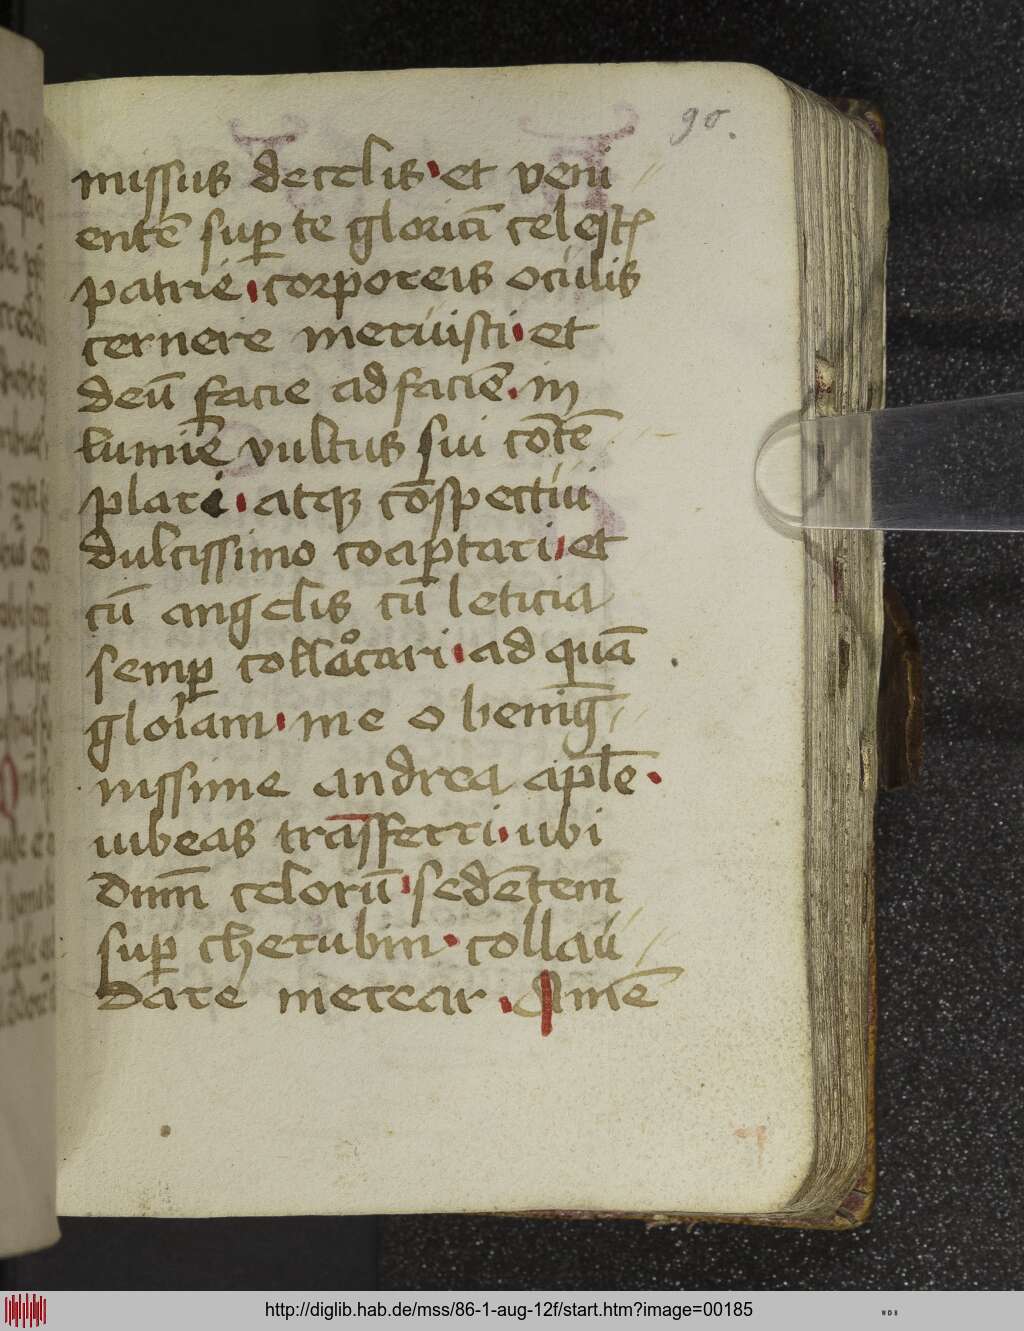 90.
missus de celis · et veni
entē sup te gloriā celestē
patrie · corporeis oculis
cernere meruisti · et
deū facie ad faciē · in
lumīe vultus sui cōtē
plari · atqꝫ cōspectui
dulcissimo coaptari · et
cū angelis cū leticia
semp collocari · ad quā
gloriam · me o benig
nissime andrea aplē ·
iubeas trāsferri · ubi
dnm̄ celorū · sedētem
sup cherubin · collau
dare merear · Amē
http://diglib.hab.de/mss/86-1-aug-12f/start.htm?image=00185